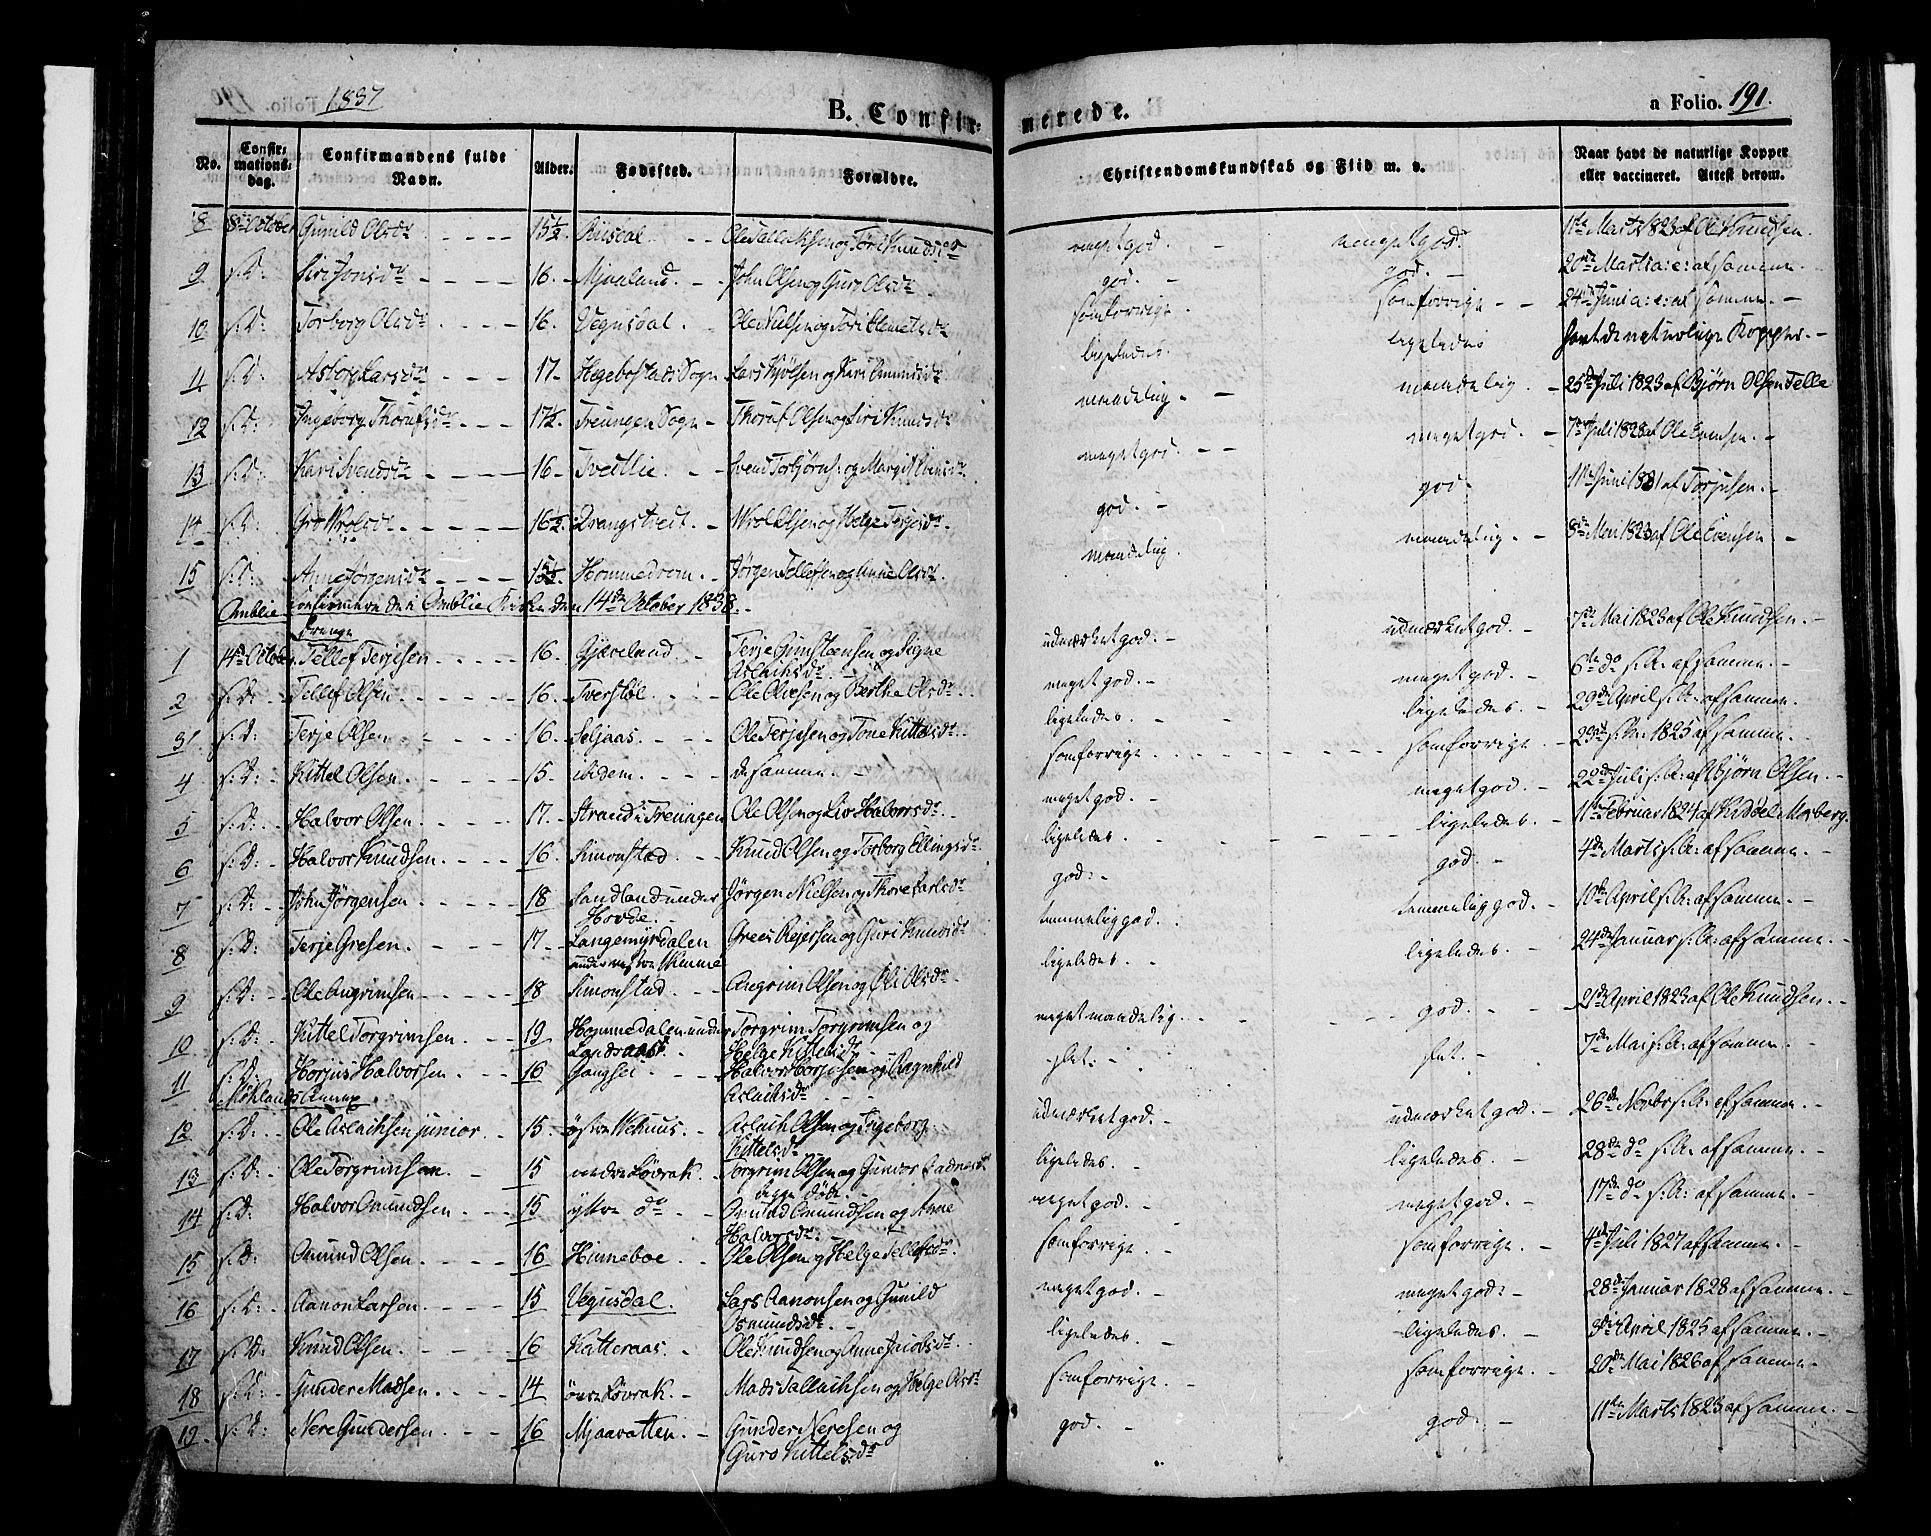 1837
B. Confir-
merede.
a Folio. 191.
No.
Confir-
mations-
dag.
Confirmandens fulde
Navn.
Alder.
Fødested.
Forældre.
Christendomskundskab og Flid m. v.
Naar havt de naturlige Kopper
eller vaccineret. Attest derom.
8 8de October Gunild Olsdr 15½ Ole Tallaksen og Tøri Knudsdr meget god. meget god. 11te Marts 1823 af Ole Knudsen.
9 s: D: Siri Jonsdr 16. Mjvaland. John Olsen og Guro Olsdr god. god. 20de Marti a: c: af samme.
10 s: D: Torborg Olsdr 16. Vegusdal. Ole Nielsen og som forrige. som forrige 24de Juni a: c: af samme.
11 s: D: Larsdr 17 Hegebostads Sogn Lars og Kari Omundsdr ligeledes. ligeledes havt de naturlige Kopper.
12 s: D: Ingeborg 17½ Treungen Sogn Olsen og Siri Knudsdr maadelig. maadelig. 25de Juli 1823 af Bjørn Olsen Telle
13 s: D: Kari Svendsdr 16 Tvedtlie. Svend Torbjørns: og Margit meget god. meget god. 7de Juli 1828 af Ole Evensen.
14 s: D: Gro Wrolsdr 16½ Wrol Olsen og Helge Terjesdr. god. god. 11te Juni 1821 af Torjusen.
15 s: D: Anne Jørgensdr 15½. Hommedrom. Jørgen Tellefsen og Anne Olsdr. maadelig. maadelig. 8de Mai 1823 af Ole Evensen
Confirmerede i Omblie Kirke den 14de October 1838.
Drenge
1 14de October Tellef Terjesen 16. Gjæveland. Terje Gunstensen og Signe
Aslaksdr. udmærket god. udmærket god. 7de Mai 1823 af Ole Knudsen.
2 s: D: Tellef Olsen 16. Tverstøl. Ole Olvesen og Berthe Olsdr. meget god. meget god. 6te do s: A: af samme.
3 s: D: Terje Olsen 16. Seljaas. Ole Terjesen og Tone Kittelsdr. ligeledes. ligeledes. 29de April s: A: af samme.
4 s: D: Kittel Olsen. 15. ibidem. de samme. som forrige. som forrige. 23de s: M: 1825 af samme.
5 s: D: Halvor Olsen. 17. Strand i Treungen Ole Olsen og Liv Halvorsdr. meget god. meget god. 22de Juli s: A: af Bjørn Olsen.
6 s: D: Halvor Knudsen. 16. Simonstad. Knud Olsen og Torborg Ellingsdr. ligeledes. ligeledes. 11te Februar 1824 af Moxberg.
7 s: D: John Jørgensen 18 Sandland under
Hovde. Jørgen Nielsen og Thore Larsdr god: god. 4de Marts s: A: af samme.
8 s: D: Terje Gresen. 17. Langemyrdalen
under Grees Rejersen og Guri Knudsdr temmelig god. temmelig god. 10de April s: A: af samme.
9 s: D: Ole Angrimsen 18 Simonstad. Angrim Olsen og Olsdr. ligeledes. ligeledes. 24de Januar s: A: af samme.
10 s: D: Kittel Torgrimsen. 19. Hommedalen under
Landsaas. Torgrim Torgrimsen og
Helge Kittelsdr meget maadelig. god. 21de April 1823 af Ole Knudsen.
11 s: D: Horjus Halvorsen. 16 Halvor Horjusen og Ragnhild
Aslaksdr slet. slet. 7de Mai s: A: af samme.
Møhlands Annex.
12 s: D: Ole Aslachsen junior. 15. Aslach Olsen og Ingeborg
Kittelsdr udmærket god. udmærket god. 26de Novbr s: A: af samme.
13 s: D: Ole Torgrimsen. 15 nedre Løvrak. Torgrim Olsen og Gunvor
begge døde. ligeledes. ligeledes. 28de do s: A: af samme.
14 s: D: Halvor Omundsen 15 yttre do Omundsen og Anne
Halvorsdr. meget god. meget god. 17de do s: A: af samme.
15 s: D: Omund Olsen 16 Hinneboe. Ole Olsen og Helge Tellefsdr. som forrige. som forrige. 4de Juli 1827 af samme.
16 s: D: Aanon Larsen. 15 Vegusdal. Lars Aanonsen og Gunild
Osmundsdr. meget god. meget god: 28de Januar 1828 af samme.
17 s: D: Knud Olsen. 16 Katteraas. Ole Knudsen og Anne Jacobsdr. ligeledes. ligeledes. 3de April 1825 af samme.
18 s: D: Gunder Madsen. 14 Løvrak. Mads Tallachsen og Helge Olsdr som forrige. som forrige. 20de Mai 1826 af samme.
19. s: D: Nere Gundersen. 16 Mjaavatten. Gunder Neresen og
Guro Kittelsdr god. god. 11te Marts 1823 af samme.